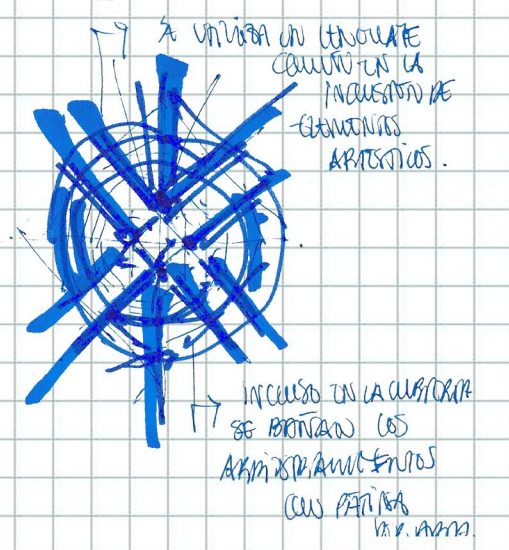 SE UTILIZA UN LENGUAJE
COMÚN EN LA
INCLUSIÓN DE
ELEMENTOS
ARTÍSTICOS.
INCLUSO EN LA CUBIERTA
SE BAÑAN LOS
CON PATINA